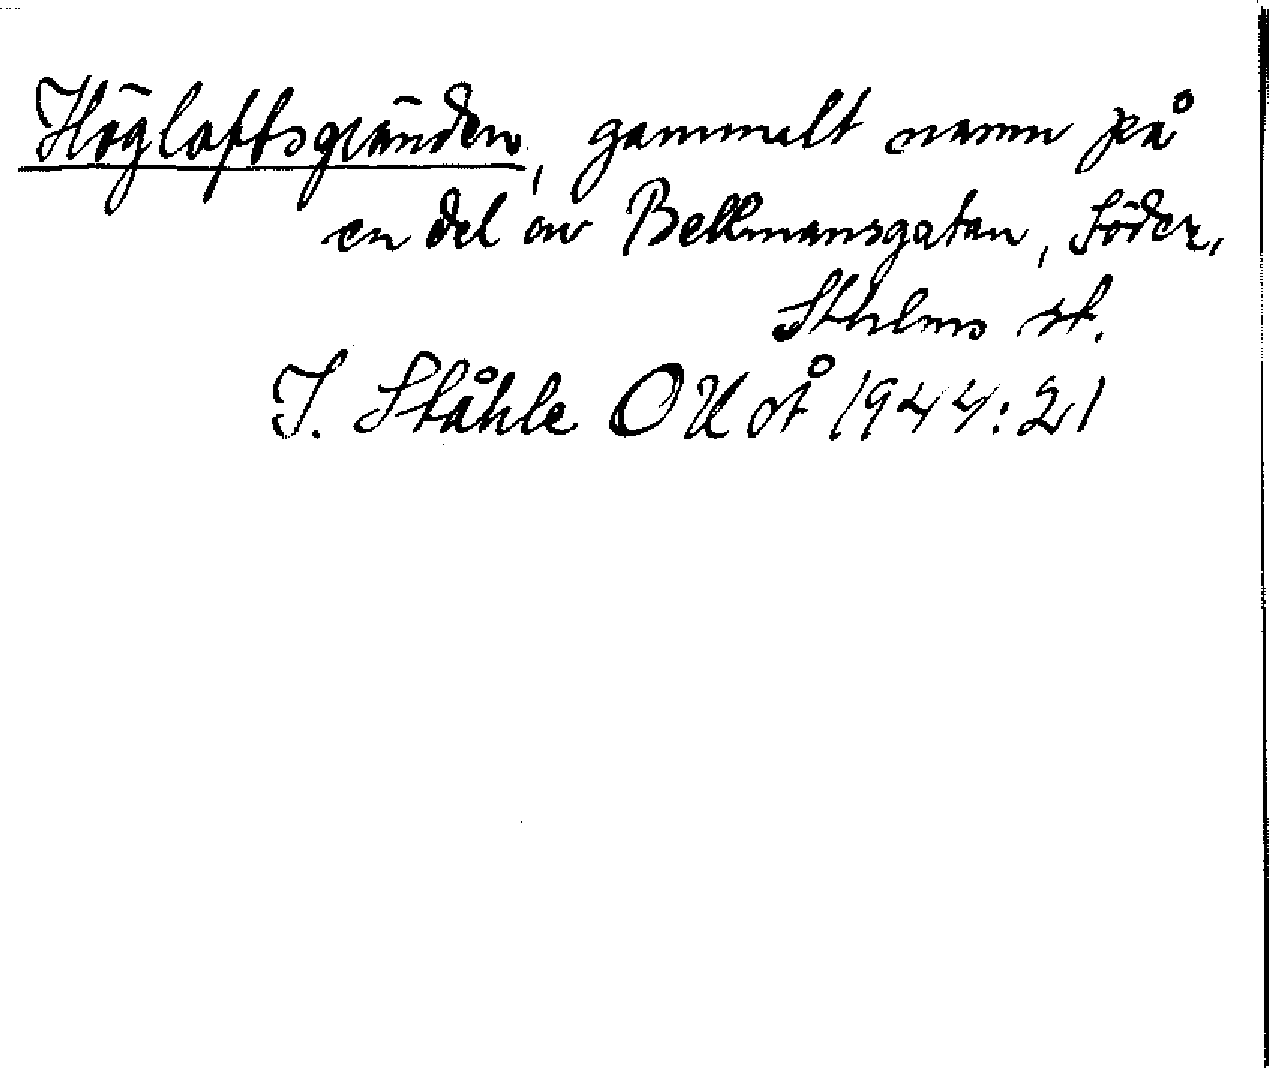 Högloftsgränden, gammalt namn på
en del av Bellmansgatan, Söder,
Sthlms st.
C. I. Ståhle OUoÅ 1944:21